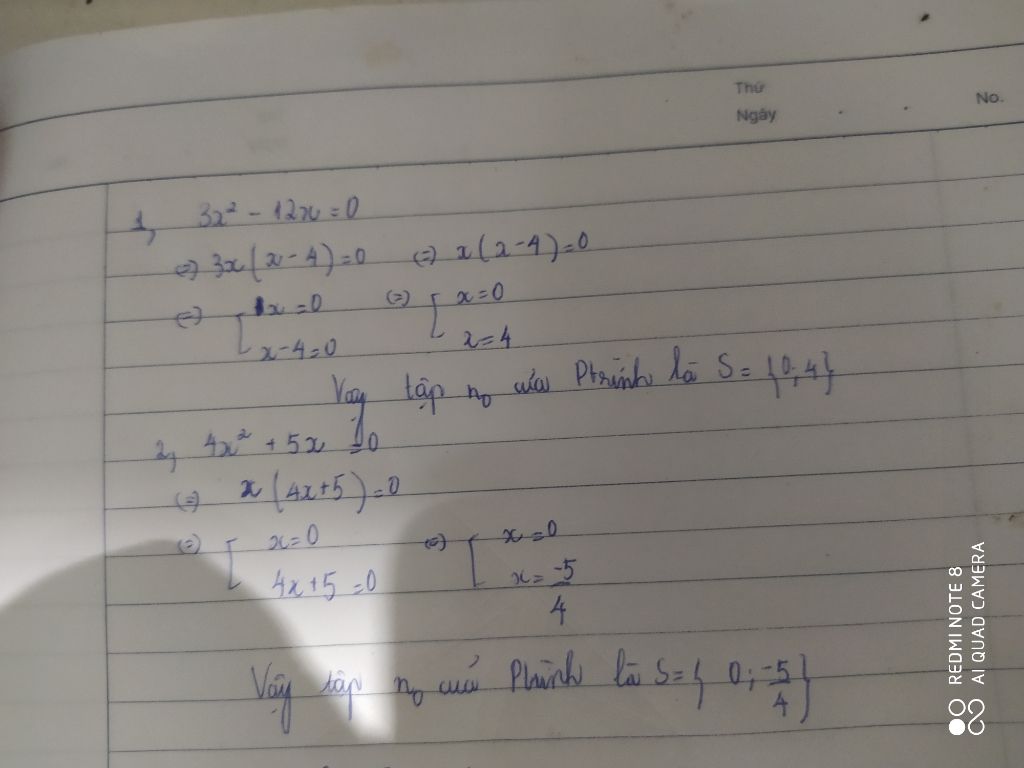 Thứ
Ngày
No.
1, 3x² - 12x = 0
(=) 3x(x - 4) = 0 (=) x(x - 4) = 0
(=) [ x = 0 (=) [ x = 0
x - 4 = 0 x = 4
Vậy tập n₀ của Ptrình là S = {0; 4}
2, 4x² + 5x = 0
(=) x(4x + 5) = 0
(=) [ x = 0 (=) [ x = 0
4x + 5 = 0 x = -5/4
Vậy tập n₀ của Ptrình là S = { 0; -5/4 }
REDMI NOTE 8
AI QUAD CAMERA